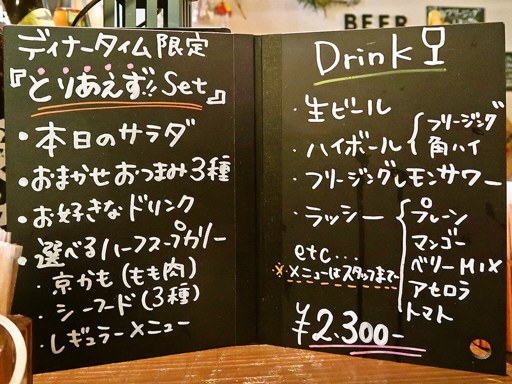 BEER
ディナータイム限定
『とりあえず!! Set』
・本日のサラダ
・おまかせおつまみ3種
・お好きなドリンク
・選べるハーフスープカリー
・京かも(もも肉)
・シーフード(3種)
・レギュラーメニュー
Drink
・生ビール
・ハイボール{フリージング
角ハイ
・フリージングレモンサワー
・ラッシー{プレーン
マンゴー
ベリーMIX
アセロラ
トマト
etc...
※メニューはスタッフまで
¥2,300-